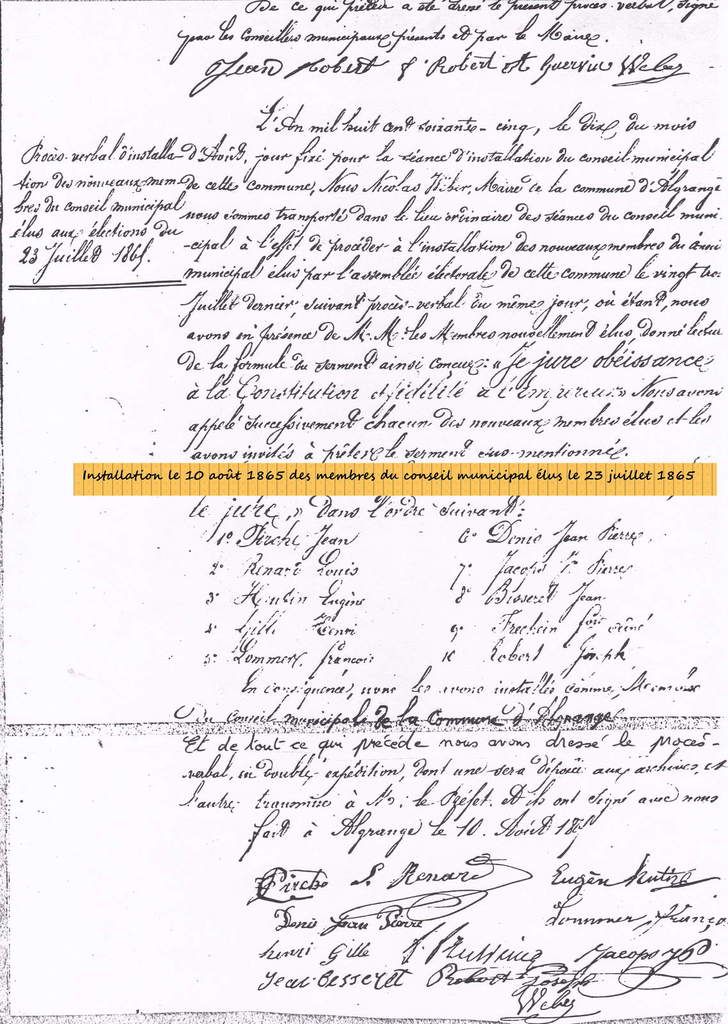 De ce qui précède a été dressé le présent procès-verbal, signé
par les conseillers municipaux présents et par le Maire.
Jean Robert Robert Weber
Procès-verbal d'installa-
tion des nouveaux mem-
bres du conseil municipal
élus aux élections du
23 Juillet 1865.
L'An mil huit cent soixante-cinq, le dix du mois
d'Août, jour fixé pour la séance d'installation du conseil municipal
de cette commune, Nous Nicolas Wéber, Maire de la commune d'Algrange
nous sommes transporté dans le lieu ordinaire des séances du conseil muni-
-cipal à l'effet de procéder à l'installation des nouveaux membres du conseil
municipal élus par l'assemblée électorale de cette commune le vingt trois
Juillet dernier, suivant procès-verbal du même jour, où étant, nous
avons en présence de M.M. les Membres nouvellement élus, donné lecture
de la formule du serment ainsi conçue: "Je jure obéissance
à la Constitution et fidélité à l'Empereur" Nous avons
appelé successivement chacun des nouveaux membres élus et les
avons invités à prêter le serment sus-mentionné.
Installation le 10 août 1865 des membres du conseil municipal élus le 23 juillet 1865
le jure," dans l'ordre suivant:
1° Pirché Jean 6° Denis Jean Pierre
2° Renard Louis 7° Jacops J. Pierre
3° Eugène 8° Bisseret Jean
4° Gille Henri 9°
5° Lommer François 10 Robert Joseph
En conséquence, nous les avons installés comme Membres
du Conseil municipale de la Commune d'Algrange
Et de tout ce qui précède nous avons dressé le procès-
verbal, en double expédition, dont une sera déposée aux archives, et
l'autre transmise à M. le Préfet. Et ils ont signé avec nous
fait à Algrange le 10. Août 1865
Pirché L. Renard Eugèn
Denis Jean Pierre Lommer, François
henri Gille Jacops JP
Jean Besseret Robert Joseph
Weber